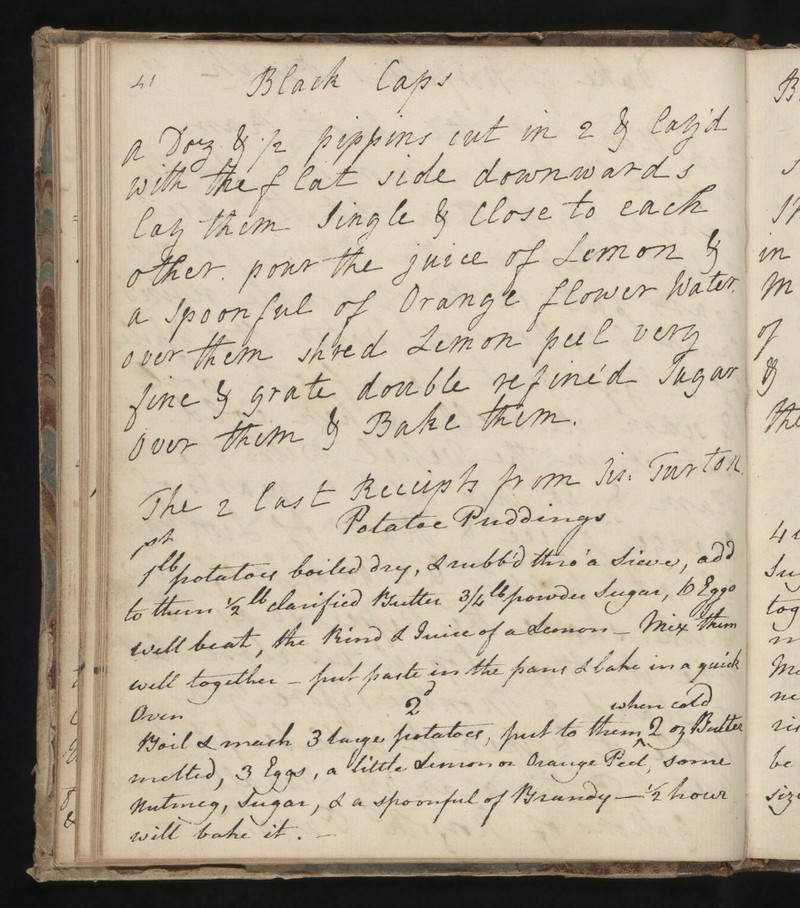 41 Black Caps
a Doz & 1/2 pippins cut in 2 & lay'd
with the flat side downwards
lay them single & close to each
other. pour the juice of Lemon &
a spoonful of Orange flower Water
over them shred Lemon peel very
fine & grate double refine'd Sugar
over them & Bake them.
The 2 last Receipts from Sis: Turton
Potatoe Puddings
1st
1lb potatoes boiled dry, & rubb'd thro' a Sieve, add
to them 1/2 lb clarified Butter 3/4 lb powder Sugar, 6 Eggs
well beat, the Rind & Juice of a Lemon – Mix them
well together – put paste in the pans & bake in a quick
Oven
2d
when cold
Boil & mash 3 large potatoes, put to them ^ 2 oz Butter
melted, 3 Eggs, a little Lemon or Orange Peel, some
Nutmeg, Sugar, & a spoonful of Brandy – 1/2 hour
will bake it. –
B
in
M
of
&
the